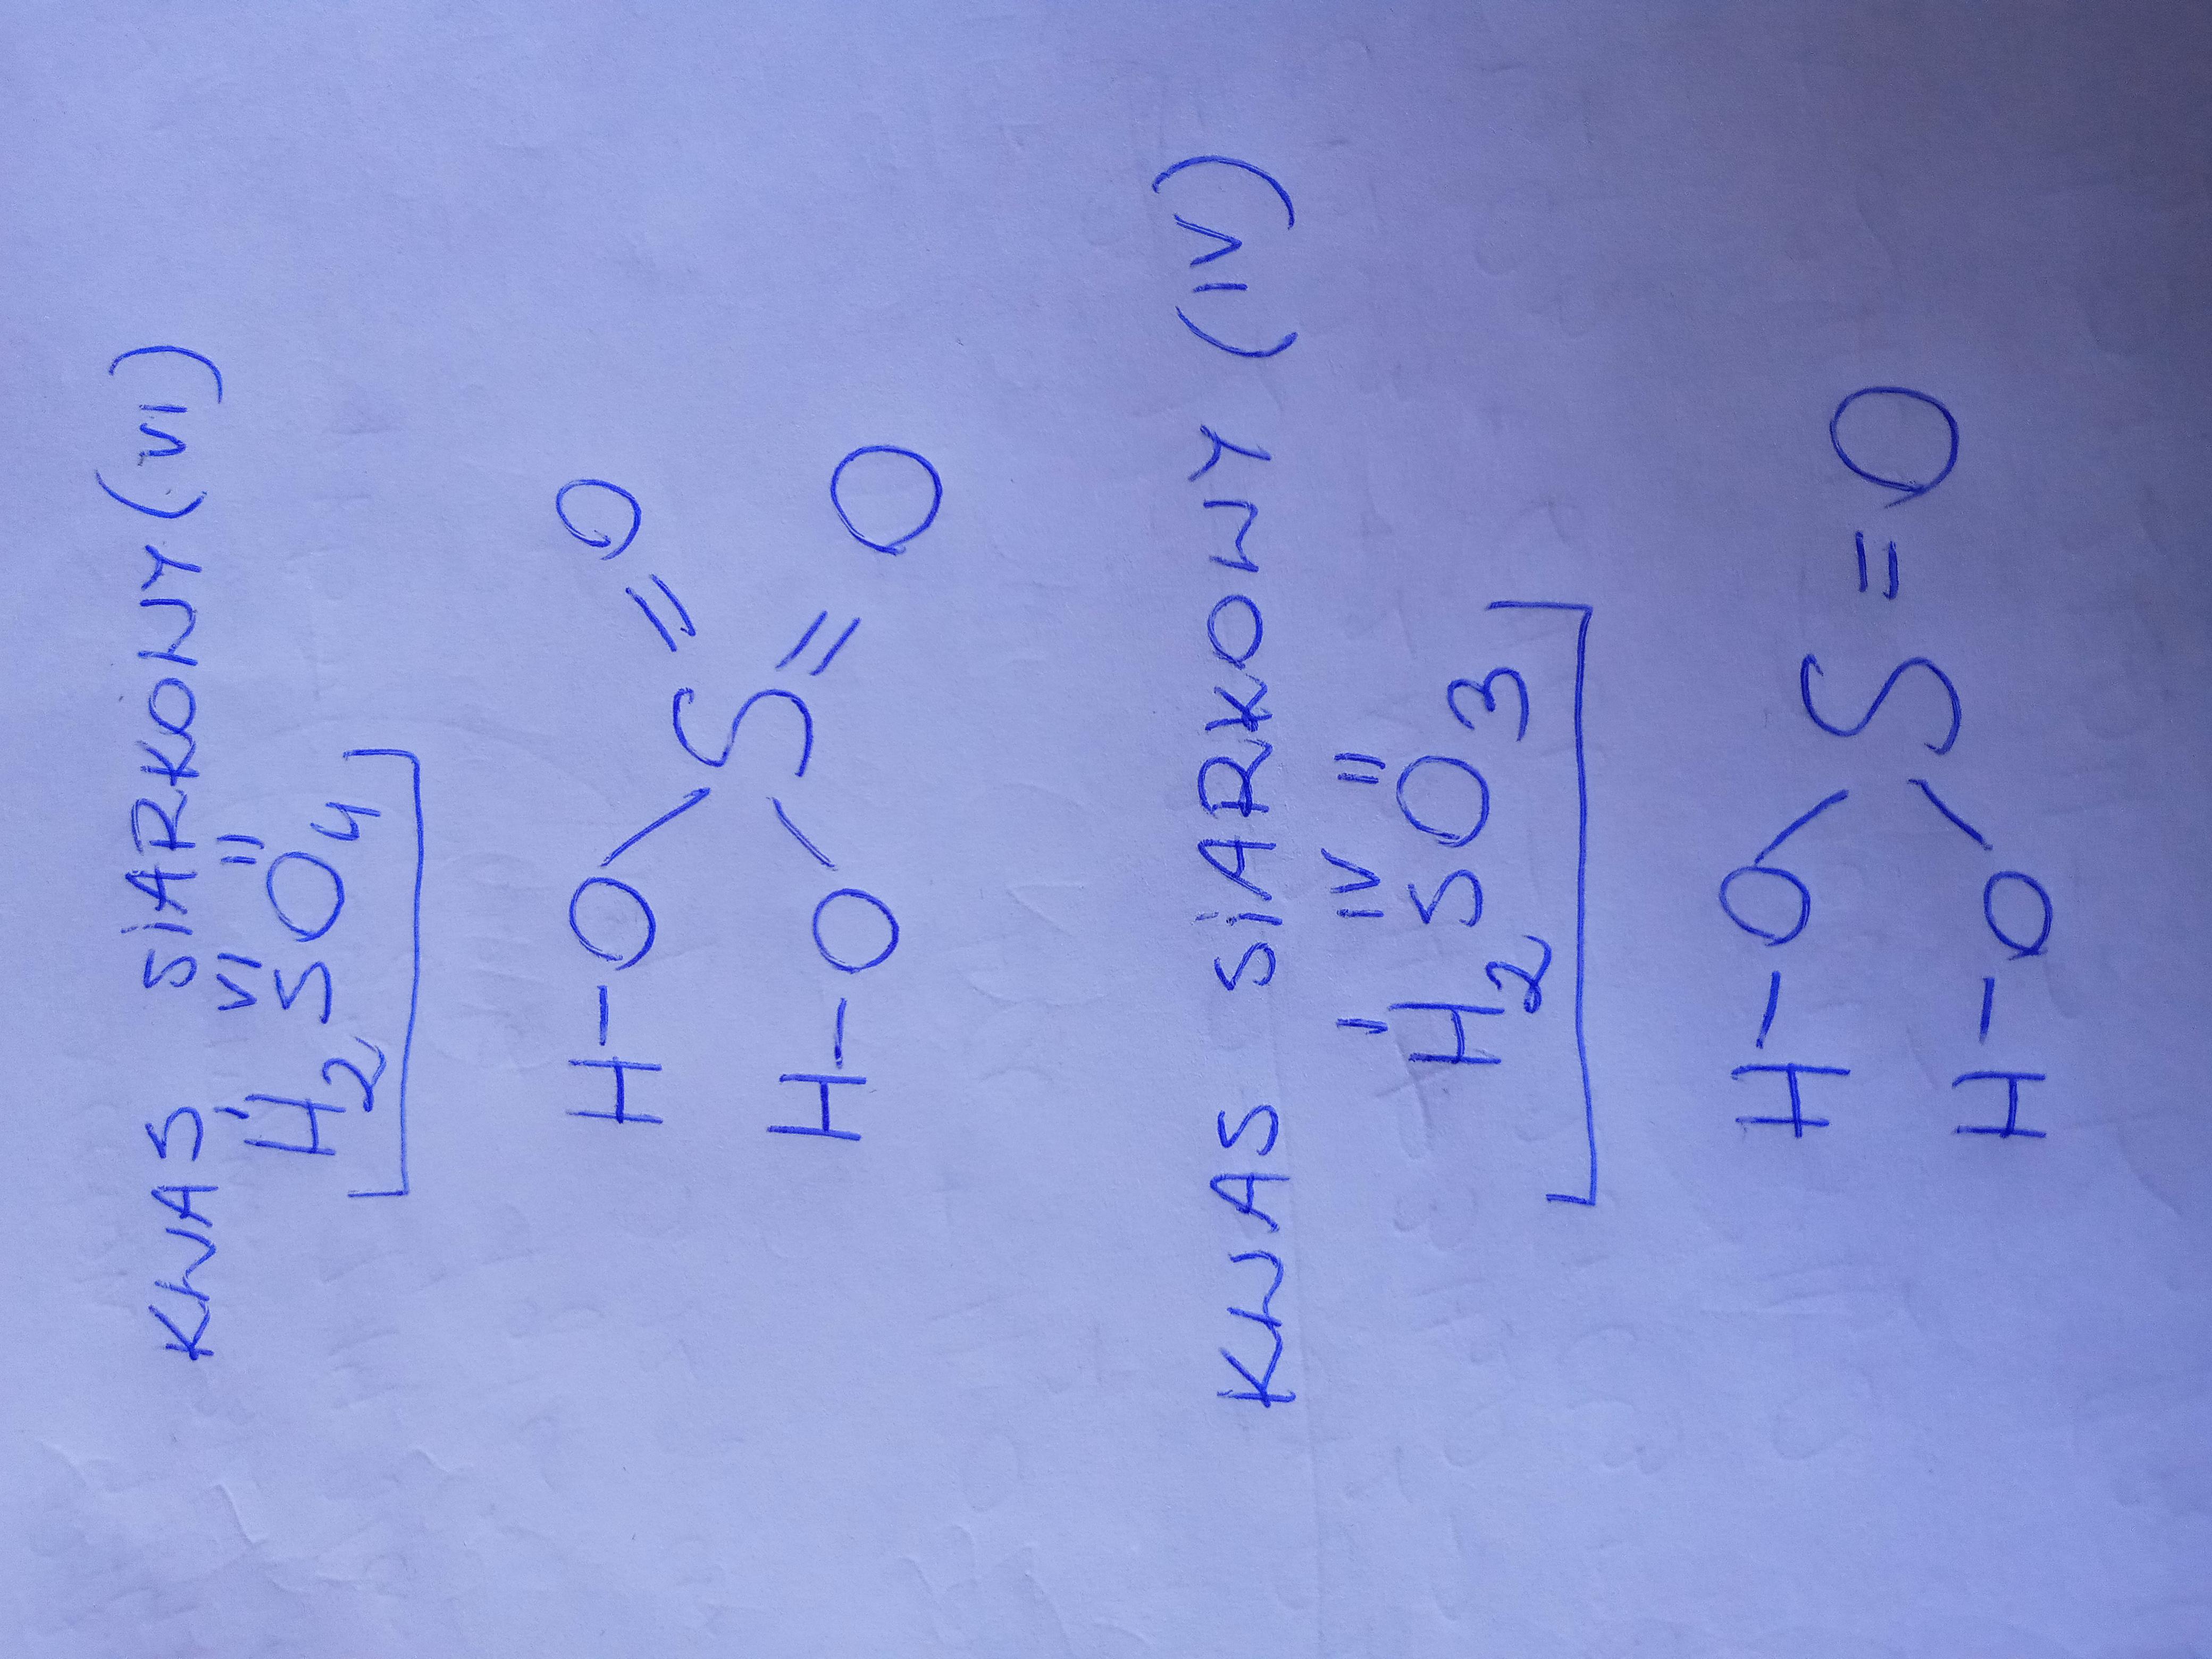 KWAS SIARKOWY (VI)
I VI II
H2SO4
H-O O
S
H-O O
KWAS SIARKOWY (IV)
I IV II
H2SO3
H-O
S=O
H-O